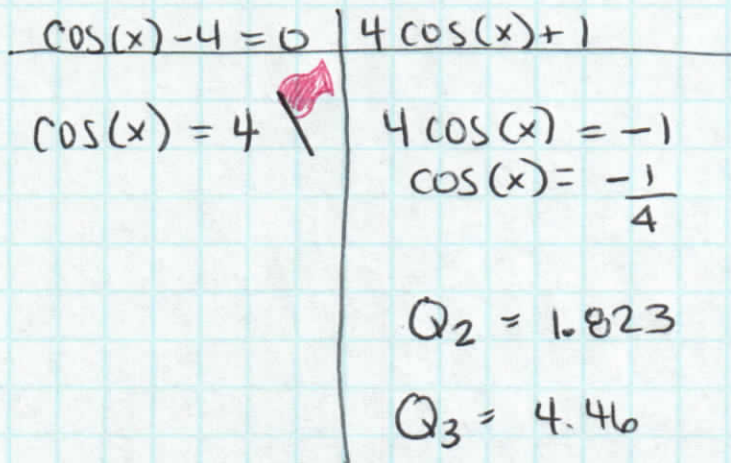 cos(x)-4=0
cos(x) = 4
4 cos(x)+1
4 cos(x) = -1
cos(x) = -1/4
Q₂ = 1.823
Q₃ = 4.46